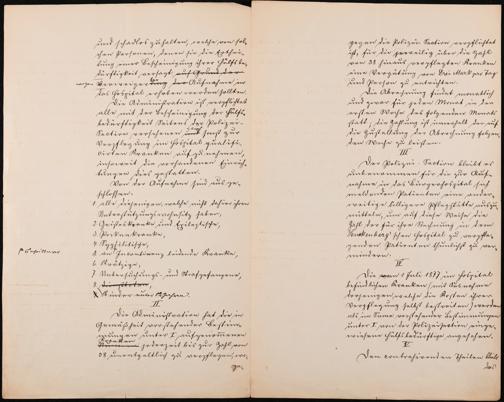 und schadlos zu halten, welche von sol-
chen Personen, denen sie die Erthei-
lung einer Bescheinigung ihrer Hülfsbe-
dürftigkeit versagt,
wegen Verweigerung der Aufnahme in
das Hospital erhoben werden sollten.
Die Administration ist verpflichtet
alle mit der Bescheinigung der Hülfs-
bedürftigkeit Seitens der Polizei-
Section versehenen und sonst zur
Verpflegung im Hospital qualifi-
cirten Kranken aufzunehmen,
insoweit die vorhandenen Einrich-
tungen dies gestatten.
Von der Aufnahme sind aus ge-
schlossen:
1. alle diejenigen, welche nicht dahier ihren
Unterstützungswohnsitz haben,
2. Geisteskranke und Epileptische,
3. Pockenkranke,
4. Syphilitische,
5. an Incontinenz leidende Kranke,
6. Krätzige,
7. Untersuchungs- und Strafgefangene,
8.
Kinder unter
II
Die Administration hat die in
Gemäßheit vorstehender Bestim-
mungen unter I. aufgenommenen
Kranken jederzeit bis zur Zahl von
38, unentgeltlich zu verpflegen, wo-
gegen die Polizei-Section verpflichtet
ist, für die jeweilig über die Zahl
von 38 hinaus verpflegten Kranken
eine Vergütung von Drei Mark pro Tag
und Person zu entrichten.
Die Abrechnung findet monatlich
und zwar für jeden Monat in der
ersten Woche des folgenden Monats
statt, die Zahlung ist innerhalb der auf
die Zustellung der Abrechnung folgen-
den Woche zu leisten.
III
Der Polizei-Section bleibt es
unbenommen für die zur Auf-
nahme in das Bürgerhospital sich
meldenden Patienten eine ander-
weitige billigere Pflegestätte auszu-
mitteln, um auf diese Weise die
Zahl der für ihre Rechnung in dem
Hospital zu verpfle-
genden Patienten thunlichst zu ver-
mindern.
IV
Die am 1 Juli 1877 im Hospital
befindlichen Kranken (mit Ausnahme
derjenigen, welche die Kosten ihrer
Verpflegung selbst bestreiten) werden
als im Sinne vorstehender Bestimmungen
unter I. von der Polizeisection einge-
wiesene Hülfsbedürftige angesehen.
V
Den contrahirenden Theilen